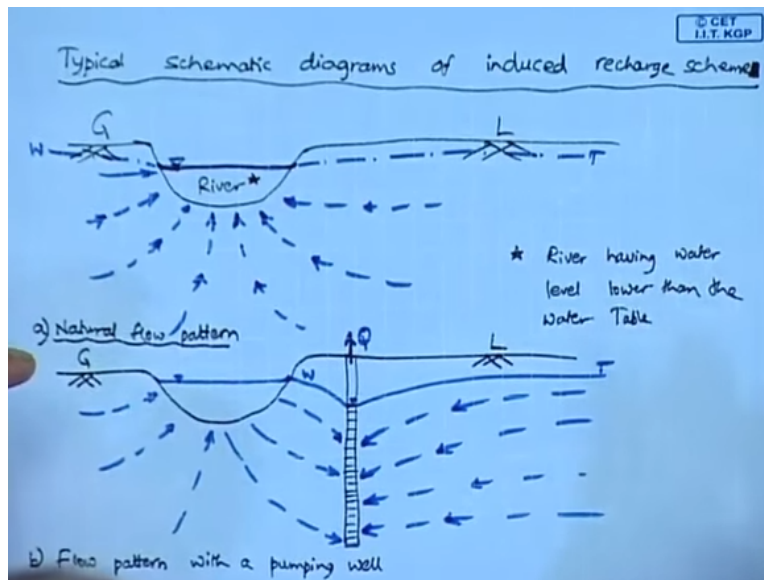 © CET
I.I.T. KGP
Typical schematic diagrams of induced recharge scheme
G
L
W
T
River *
* River having water
level lower than the
Water Table
a) Natural flow pattern
G
Q
L
W
T
b) Flow pattern with a pumping well